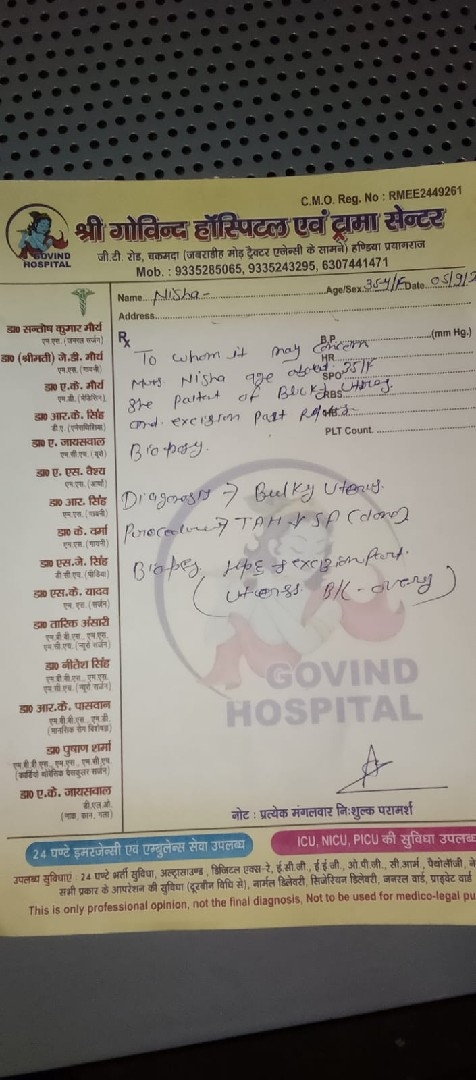 C.M.O. Reg. No : RMEE2449261
श्री गोविन्द हॉस्पिटल एवं ट्रामा सेन्टर
GOVIND
HOSPITAL
जी.टी. रोड, चकमदा (जबराडीह मोड़ ट्रैक्टर एजेन्सी के सामने) हण्डिया प्रयागराज
Mob. : 9335285065, 9335243295, 6307441471
Name Nisha Age/Sex 35y/F Date 05/9/2
Address
डा० सन्तोष कुमार मौर्य
डा० (श्रीमती) जे.डी. मौर्य
डा० ए.के. मौर्य
डा० आर.के. सिंह
डा० ए. जायसवाल
डा० ए. एस. वैश्य
डा० आर. सिंह
डा० के. वर्मा
डा० एस.जे. सिंह
डा० एस.के. यादव
डा० तारिक अंसारी
डा० नीतेश सिंह
डा० आर.के. पासवान
डा० पुषाण शर्मा
डा० ए.के. जायसवाल
(नाक, कान, गला)
Rx
B.P. (mm Hg.)
HR
SPO
RBS
PLT Count
To whom it may concern
Nisha age about 35/F
She patient of Bulky Uterus
and excision Part
Biopsy.
Diagnosis → Bulky Uterus.
Procedure → TAH + (done)
Biopsy HPE of excision Part.
(Uterus B/L - ovary)
GOVIND
HOSPITAL
नोट : प्रत्येक मंगलवार निःशुल्क परामर्श
24 घण्टे इमरजेन्सी एवं एम्बुलेन्स सेवा उपलब्ध
ICU, NICU, PICU की सुविधा उपलब्ध
उपलब्ध सुविधाएं : 24 घण्टे भर्ती सुविधा, अल्ट्रासाउण्ड, डिजिटल एक्स-रे, ई.सी.जी., ई.ई.जी., ओ.पी.जी., सी.आर्म, पैथोलॉजी,
सभी प्रकार के आपरेशन की सुविधा (दूरबीन विधि से), नार्मल डिलेवरी, सिजेरियन डिलेवरी, जनरल वार्ड, प्राइवेट वार्ड
This is only professional opinion, not the final diagnosis, Not to be used for medico-legal pu